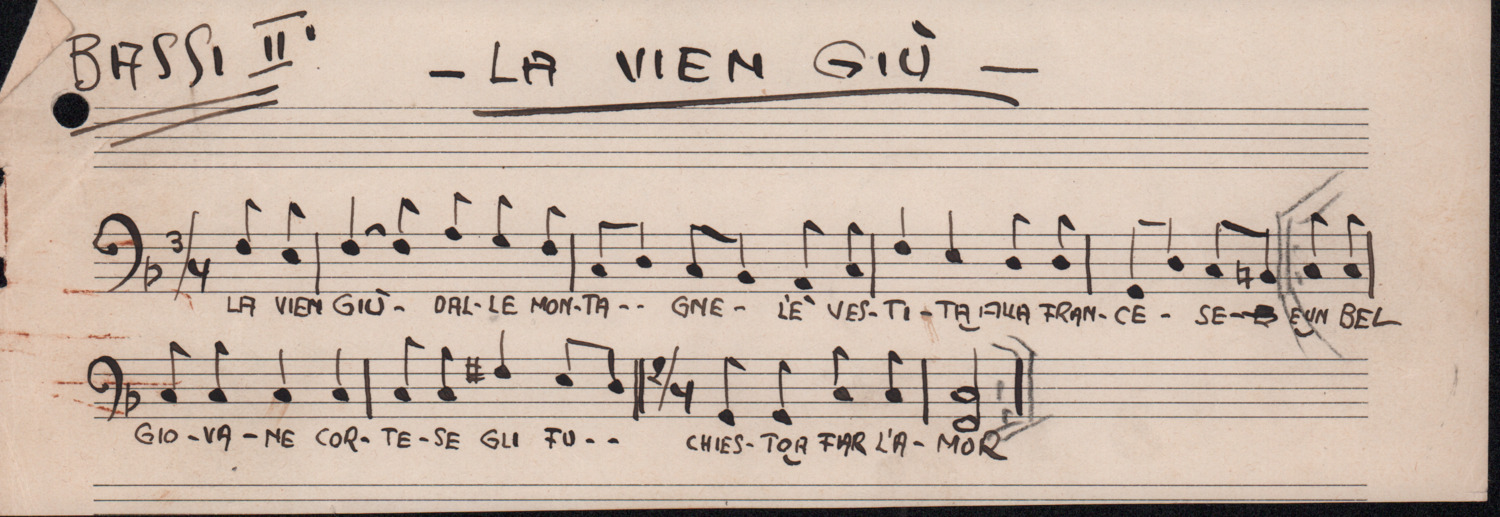 BASSI II° - LA VIEN GIÙ -
3/4
LA VIEN GIÙ - DAL-LE MON-TA -- GNE - L'È VES-TI-TA ALLA FRAN-CE - SE - E UN BEL
2/4
GIO-VA-NE COR-TE-SE GLI FU -- CHIES-TO A FAR L'A-MOR